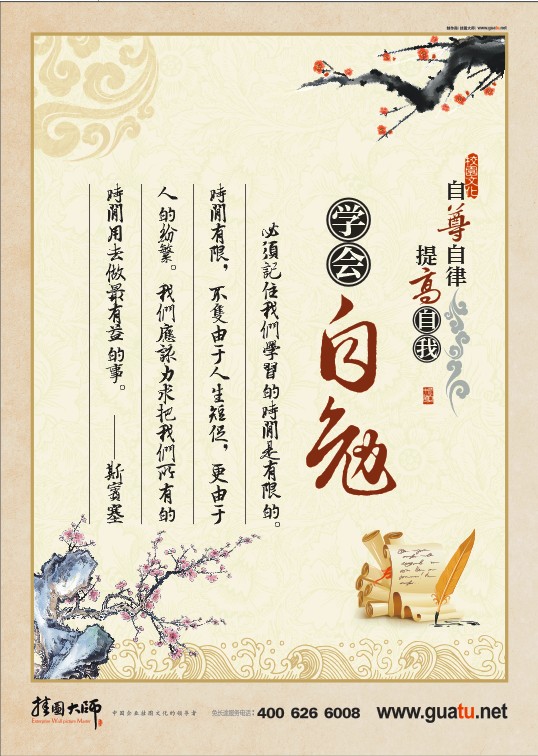 制作商：挂图大师 www.guatu.net
校園文化
自尊自律
提高自我
学会
自勉
必須記住我們學習的時間是有限的。
時間有限，不隻由于人生短促，更由于
人的紛繁。我們應該力求把我們所有的
時間用去做最有益的事。
——斯賓塞
挂图大师
Enterprise Wall pictures Master
中国企业挂图文化的领导者
免长途服务电话：400 626 6008
www.guatu.net